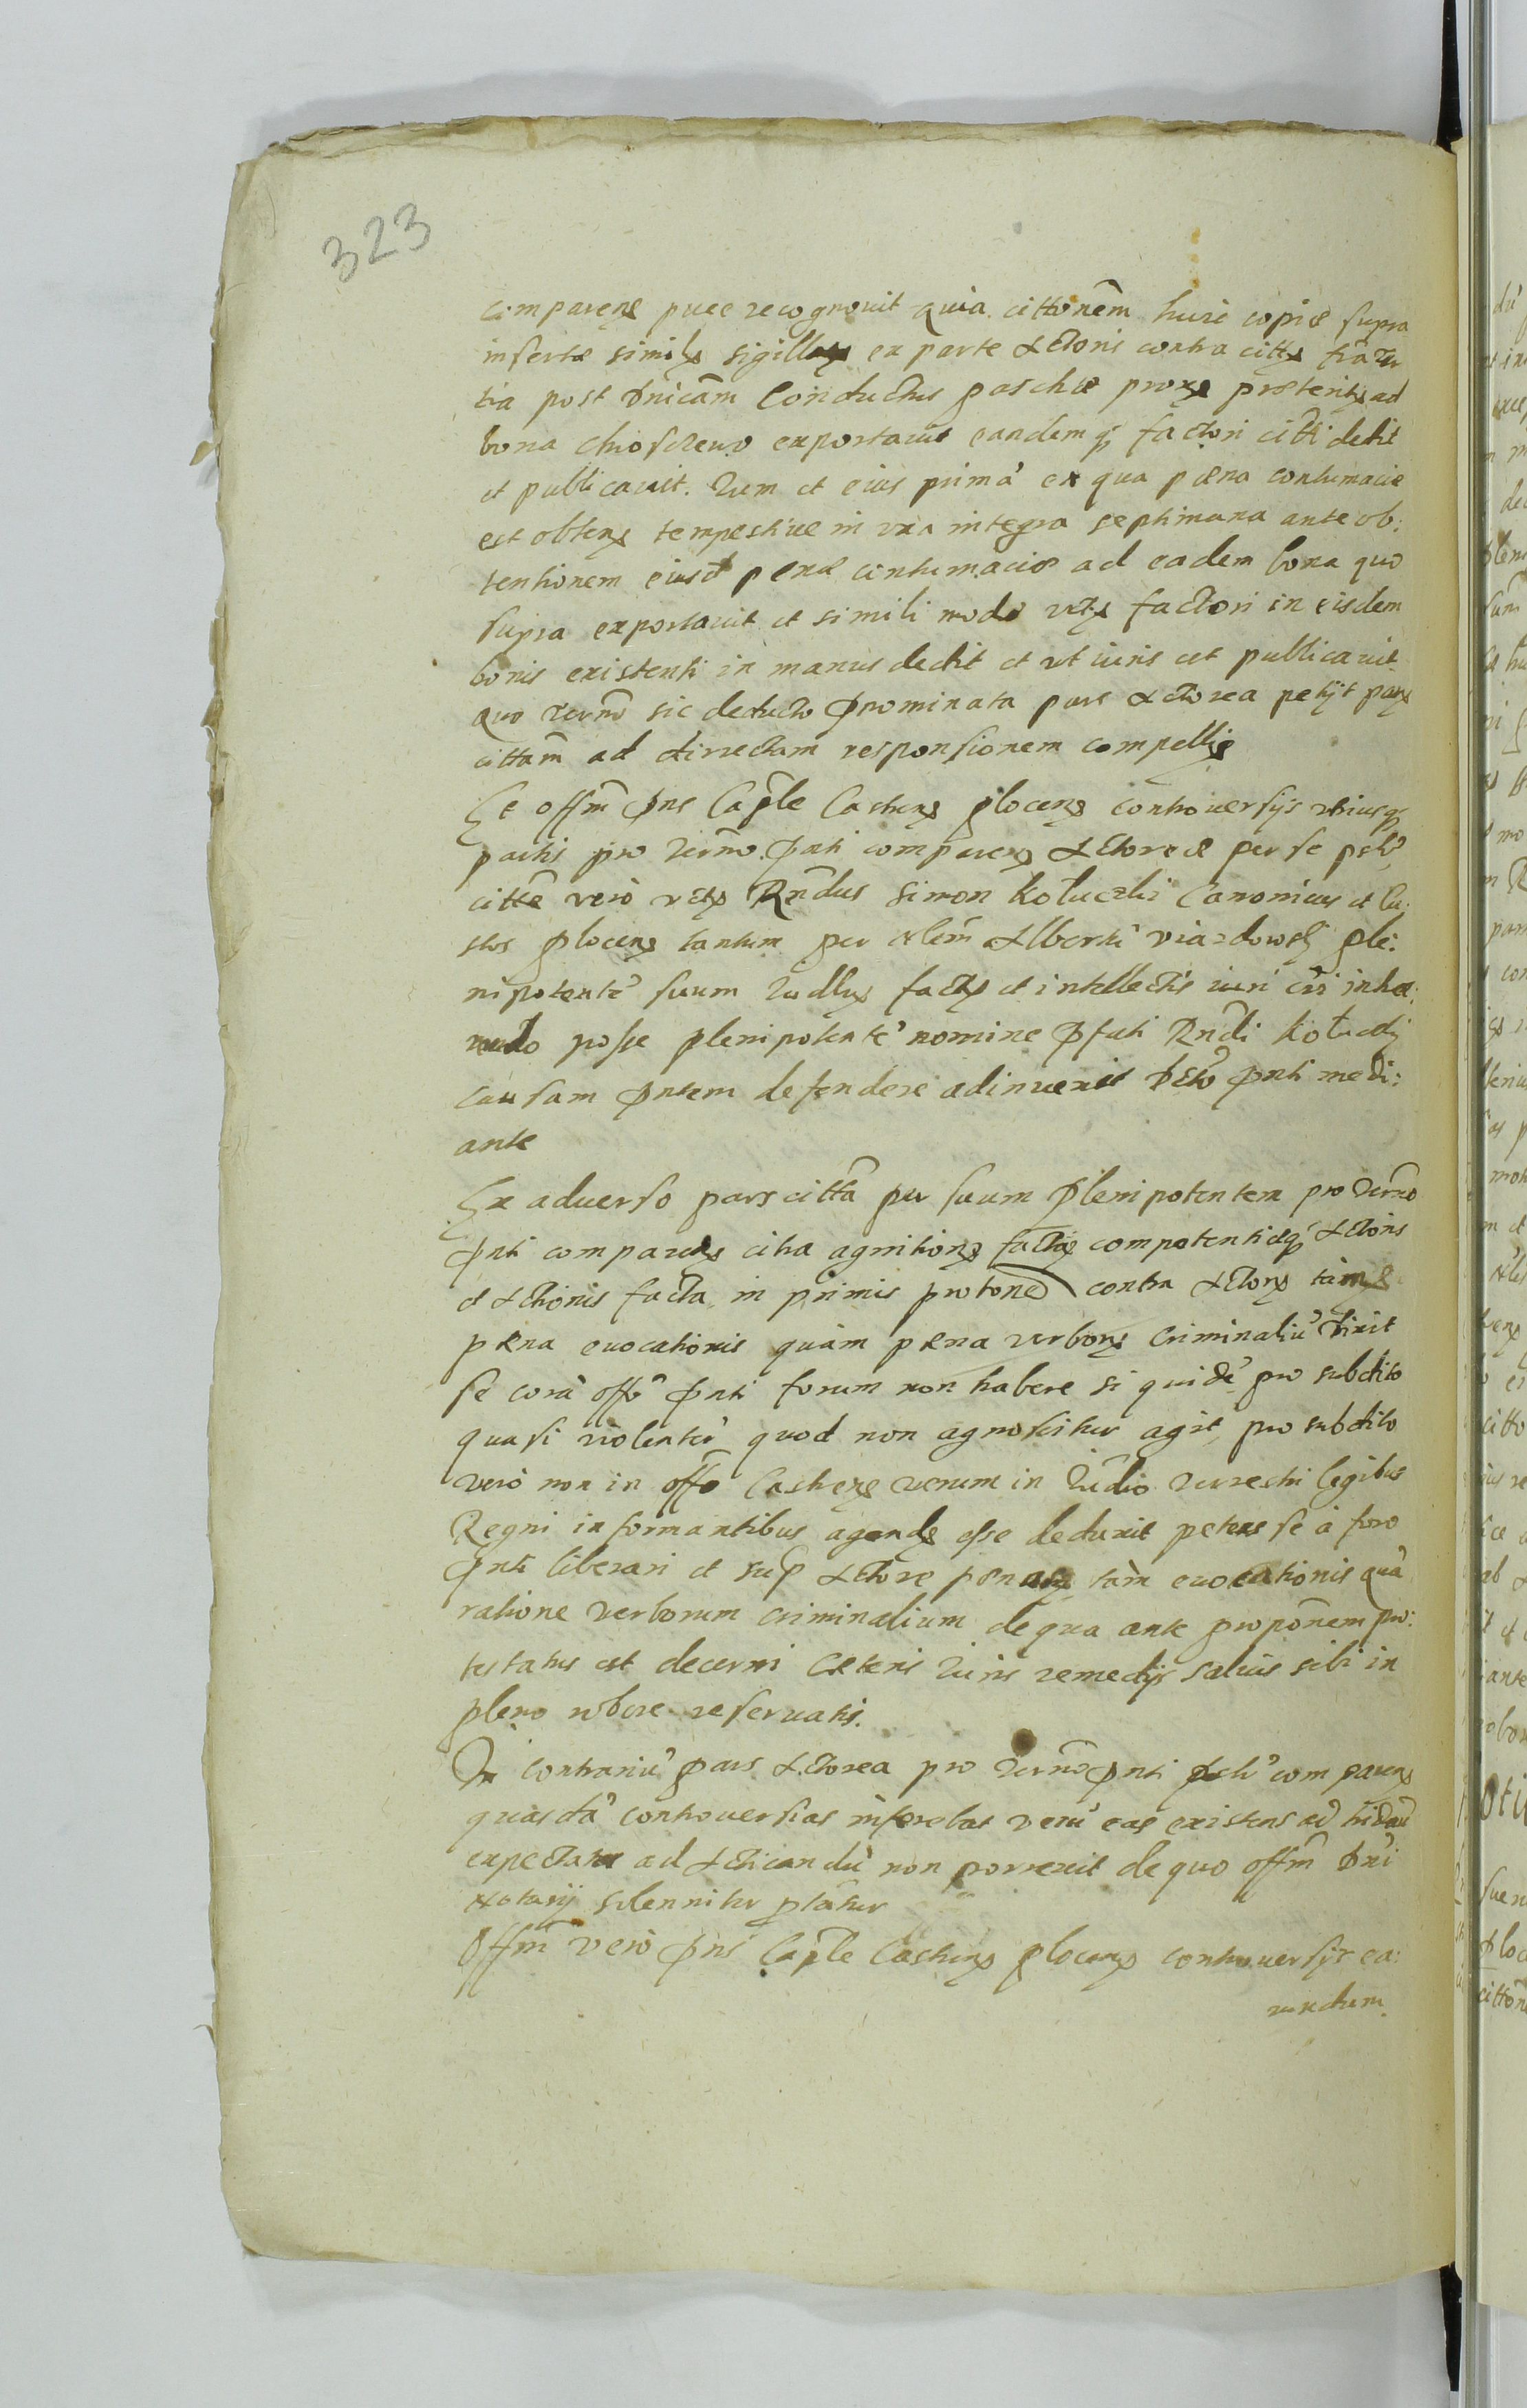 323
comparens pure recognovit quia cittonem huic copiæ supra
insertæ similem sigillatam ex parte Actoris contra cittum feria
tia post dnicam Conductus paschæ proxe præteritam ad
bona exportavit eandemq factori citti dedit
et publicavit. Tum et eius prima ex qua pæna contumaciæ
est obtens tempestive in una integra septimana ante ob:
tentionem eiusd penæ contumaciæ ad eadem bona quo
supra exportavit et simili modo factori in eisdem
bonis existenti in manus dedit et ut iuris est publicavit
quo termo sic deducto pnominata pars Actorea petijt parte
cittam ad directam responsionem compelli
Et offm pns Caple Castren plocen controversijs utriusq
partis pro termo pnti comparen Actoreæ per se psolr
citte vero Rndus Simon Kołuczki Canonicus et Cu:
stos plocen tantum per nblem Alberti viazdowski ple:
nipotente suum Iudlis factis et intellectis iuri cõi inhæ:
rendo posse plenipotente nomine pfati Rndi Kołucki
causam pntem defendere adinvenit dcto pnti medi:
ante
Ex adverso pars citta per suum plenipotentem pro termo
pnti comparens citra agnitionem competentiæq Actoris
et Actionis facta in primis protone contra Actorem tam
pæna evocationis quam pæna verborum criminaliu dixit
se cora offo pnti forum non habere si quide pro subdito
quasi violenter quod non agnoscitur agit pro subdito
vero non in offo Castren verum in Iudio terrestri legibus
Regni informantibus agend esse deduxit petens se a foro
pnti liberari et sup Actore pænas tam evocationis qua
ratione verborum criminalium de qua ante proponem pro:
testatus est decerni cæteris iuris remedijs salvis sibi in
pleno robore reservatis.
In contrariu pars Actorea pro termo pnti psolr comparens
quasda controversias inferebat veru eas existens ad
expectata ad Acticandu non porrexit de quo offm dni
Notarij solenniter ptatur
Offm vero pns Caple Castren plocen controversijs ea:
rundum